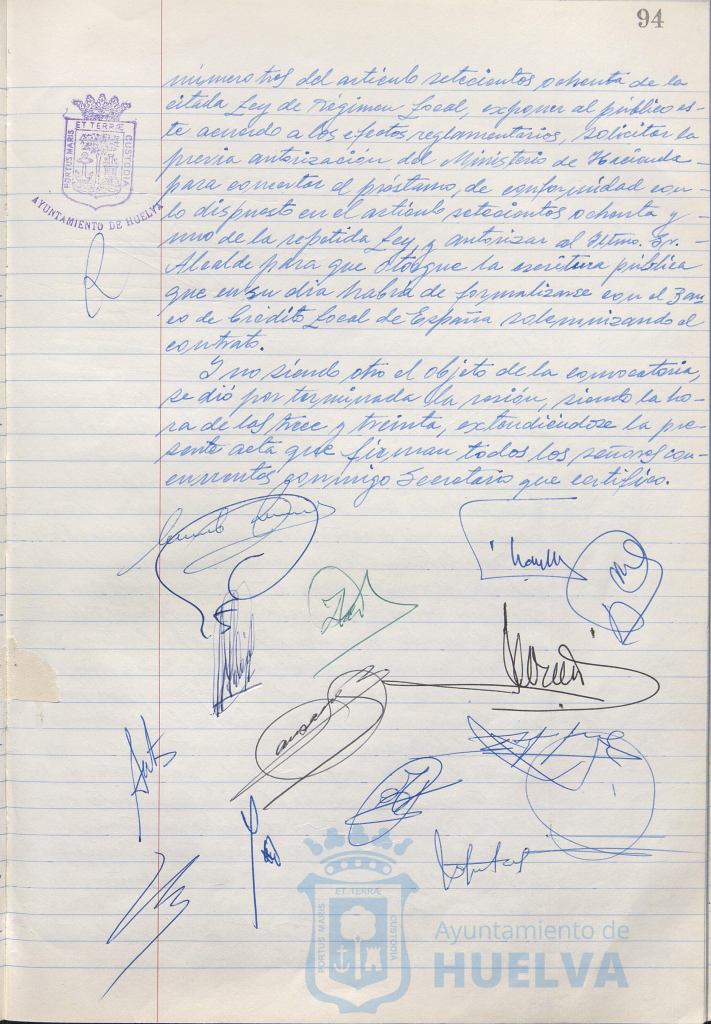 94
número tres del artículo setecientos ochenta de la
citada Ley de Régimen Local, exponer al público es-
te acuerdo a los efectos reglamentarios, solicitar la
previa autorización del Ministerio de Hacienda
para concertar el préstamo, de conformidad con
lo dispuesto en el artículo setecientos ochenta y
uno de la repetida Ley, y autorizar al Iltmo. Sr. -
Alcalde para que otorgue la escritura pública
que en su dia habrá de formalizarse con el Ban-
co de Crédito Local de España solemnizando el
contrato.
Y no siendo otro el objeto de la convocatoria,
se dió por terminada la sesión, siendo la ho-
ra de las trece y treinta, extendiéndose la pre-
sente acta que firman todos los señores con-
currentes conmigo Secretario que certifico.
PORTUS MARIS ET TERRÆ CUSTODIA
AYUNTAMIENTO DE HUELVA
PORTUS MARIS ET TERRÆ CUSTODIA
Ayuntamiento de
HUELVA